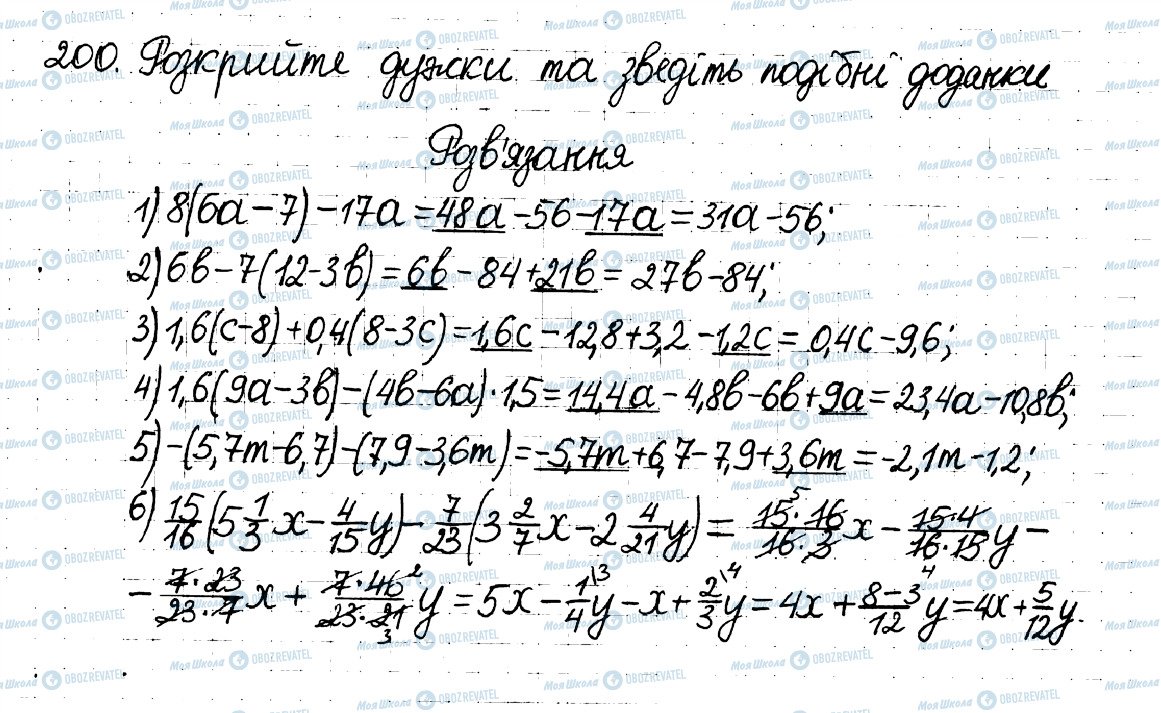 200. Розкрийте дужки та зведіть подібні доданки
Розв'язання
1) 8(6a − 7) − 17a = 48a − 56 − 17a = 31a − 56;
2) 6в − 7(12 − 3в) = 6в − 84 + 21в = 27в − 84;
3) 1,6(c − 8) + 0,4(8 − 3c) = 1,6c − 12,8 + 3,2 − 1,2c = 0,4c − 9,6;
4) 1,6(9a − 3в) − (4в − 6a) · 1,5 = 14,4a − 4,8в − 6в + 9a = 23,4a − 10,8в;
5) −(5,7m − 6,7) − (7,9 − 3,6m) = −5,7m + 6,7 − 7,9 + 3,6m = −2,1m − 1,2;
6) 15/16 (5 1/3 x − 4/15 y) − 7/23 (3 2/7 x − 2 4/21 y) = 15·16/16·3 x − 15·4/16·15 y −
− 7·23/23·7 x + 7·46/23·21 y = 5x − 1/4 y − x + 2/3 y = 4x + 8−3/12 y = 4x + 5/12 y.